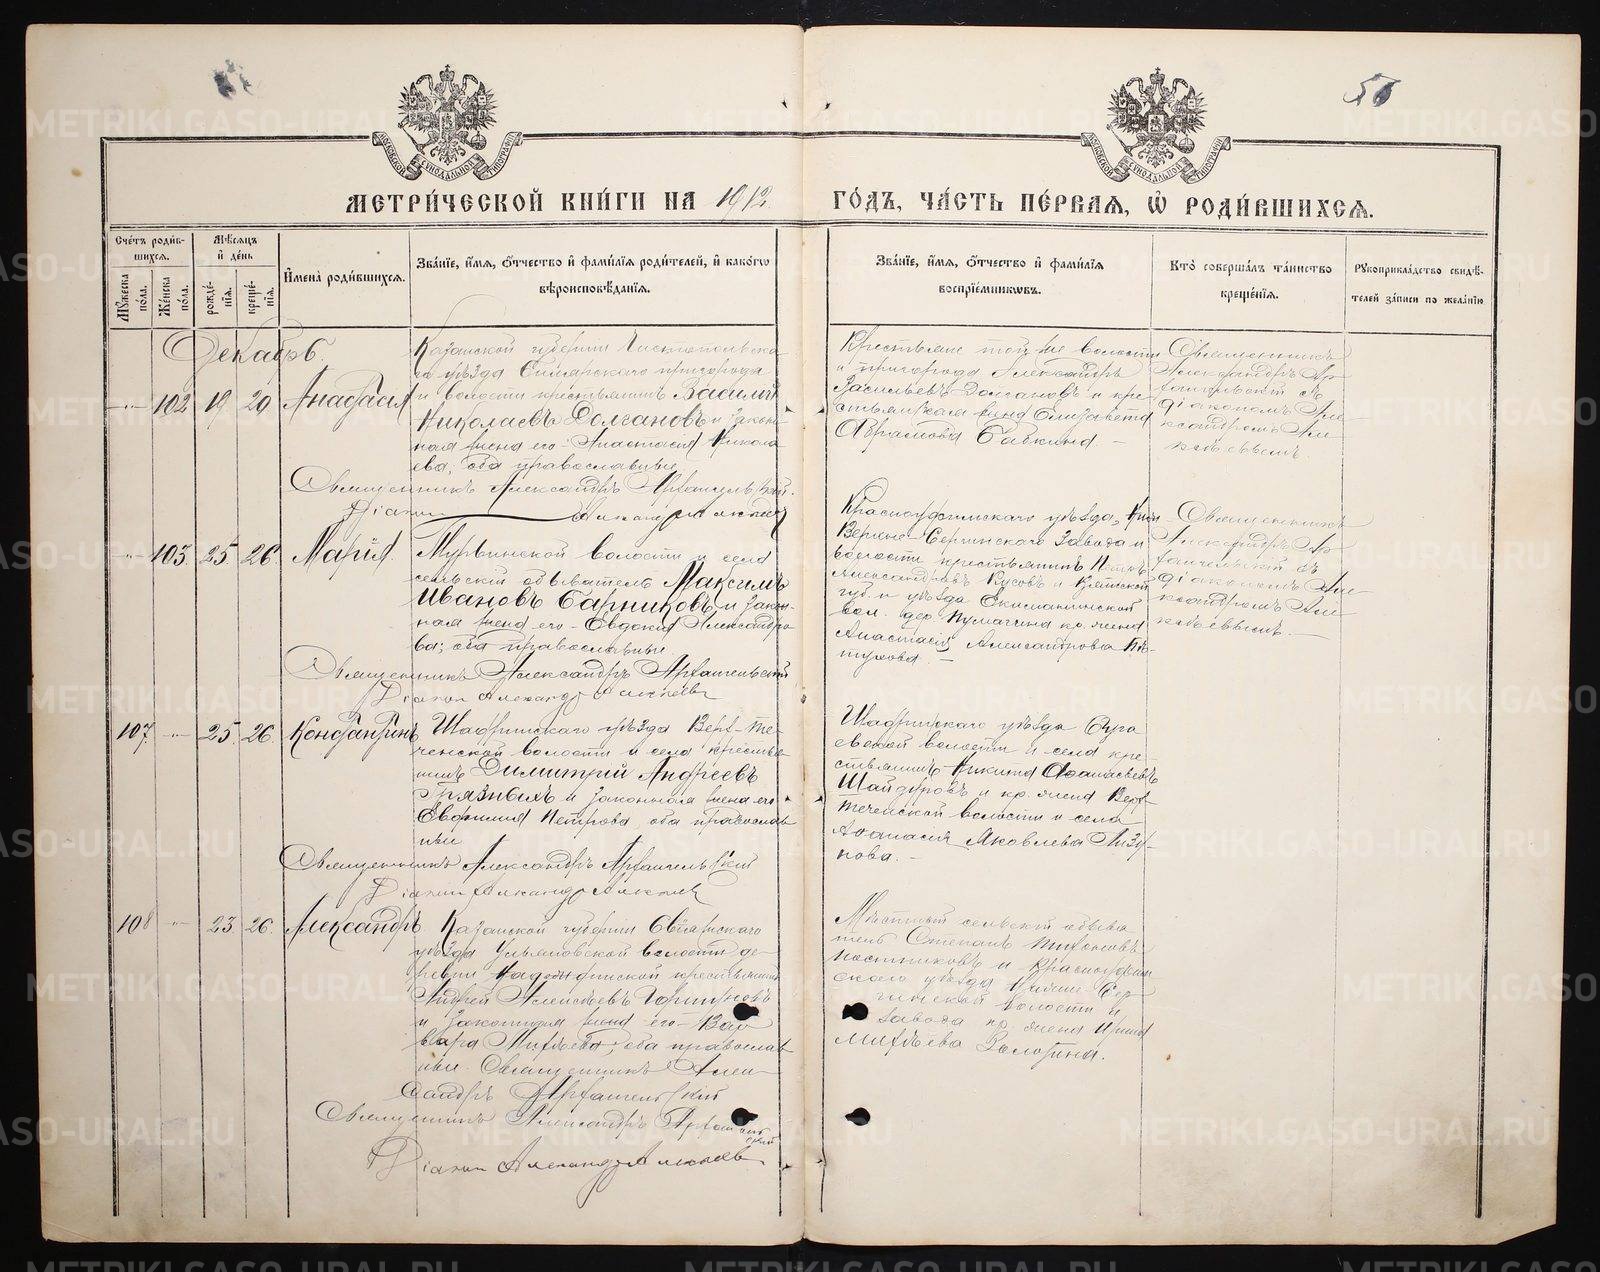 55
МЕТРИ́ЧЕСКОЙ КНИ́ГИ НА 1912
ГО́ДЪ, ЧА́СТЬ ПЕ́РВАЯ, Ѡ РОДИ́ВШИХСЯ.
Сче́тъ роди́в-
шихся.
Мѣ́сяцъ
и҆ де́нь
Мꙋ́жеска по́ла.
Же́нска по́ла.
рожде́-нїѧ.
креще́-нїѧ.
И҆мена̀ роди́вшихся.
Зва́нїе, и҆́мя, ѻ҆́тчество и҆ фами́лїя роди́телей, и҆ како́гѡ
вѣроисповѣ́данїя.
Зва́нїе, и҆́мя, ѻ҆́тчество и҆ фами́лїя
воспрїе́мникѡвъ.
Кто̀ соверша́лъ та́инство
креще́нїя.
Рꙋкоприкла́дство свидѣ́-
телей за́писи по жела́нїю
Декабрь.
102 19 20 Анастасія
Казанской губерніи
го уѣзда пригорода
и волости крестьянинъ Василій
Николаевъ Долгановъ и закон-
ная жена его Анастасія Никола
ева, оба православные
Священникъ Александръ Архангельскій.
Діаконъ Александръ Алексѣевъ
Крестьяне той же волости
и пригорода Александръ
Васильевъ Долгановъ и кре-
стьянская жена Елизавета
Абрамова Бабкина –
Священникъ
Александръ Ар-
хангельскій съ
діакономъ Але-
ксандромъ Але-
ксѣевымъ.
103. 25. 26. Марія.
волости и села
сельскій обыватель Максимъ
Ивановъ Барниковъ и закон-
ная жена его – Евдокія Александро
ва; оба православные.
Священникъ Александръ Архангельскій
Діаконъ Александръ Алексѣевъ
Красноуфимскаго уѣзда,
Верхне-Сергинскаго завода и
волости крестьянинъ Петръ
Александровъ Кусовъ и Вятской
губ. и уѣзда
вол. дер. кр. жена
Анастасія Александрова Пѣ-
тухова. –
Священникъ
Александръ Ар-
хангельскій съ
діакономъ Але-
ксандромъ Але-
ксѣевымъ. –
107. 25. 26. Константинъ
Шадринскаго уѣзда Верх-Те-
ченской волости и села крестья
нинъ Димитрій Андреевъ
Грязныхъ и законная жена его
Евфимія Петрова, оба православ
ные
Священникъ Александръ Архангельскій
Діаконъ Александръ Алексѣевъ
Шадринскаго уѣзда Суго
евской волости и села кре
стьянинъ Никита Аѳанасьевъ
Шайдуровъ и кр. жена Верх-
теченской волости и села
Аѳанасія Яковлева Лазу-
кова. –
108 23 26. Александръ
Казанской губерніи Свіяжскаго
уѣзда Ульянковской волости де-
ревни крестьянинъ
Андрей Алексѣевъ
и законная жена его – Вар
вара Михѣева; оба православ
ные. Священникъ Алек-
сандръ Архангельскій
Священникъ Александръ Архангельскій
Діаконъ Александръ Алексѣевъ
Мѣстный сельскій обыва
тель Степанъ Тихоновъ
Постниковъ и Красноуфим
скаго уѣзда Нижне-Сер-
гинской волости и
завода кр. жена Ирина
Михѣева Золотина.
METRIKI.GASO-URAL.RU